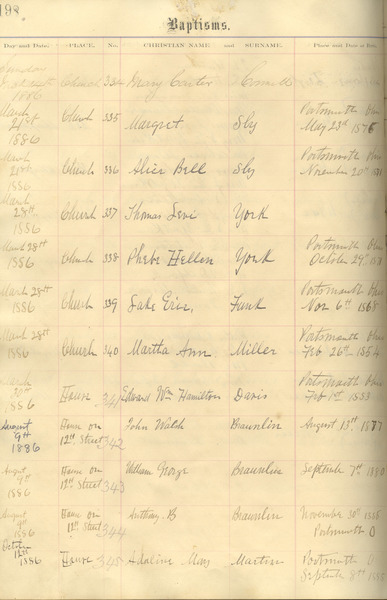 198
Baptisms.
Day and Date. PLACE. No. CHRISTIAN NAME and SURNAME. Place and Date of Birth.
Sunday
1886 Church 334 Mary
March
21st
1886 Church 335 Margret Sly Portsmouth Ohio
May 23rd 1876
March
21st
1886 Church 336 Alice Bell Sly Portsmouth Ohio
November 20th
March
28th
1886 Church 337 Thomas Levi York
March 28th
1886 Church 338 Phebe Hellen York Portsmouth Ohio
October 29th
March 28th
1886 Church 339 Funk Portsmouth Ohio
Nov 6th 1868
March 28th
1886 Church 340 Martha Ann Miller Portsmouth Ohio
Feb 26th 1864
March
1886 House 341 Edward Wm Hamilton Davis Portsmouth Ohio
Feb 1st 1883
August
9th
1886 House on
12th Street 342 John Walch Braunlin August 13th 1877
August
9th
1886 House on
12th Street 343 William George Braunlin September 7th 1880
August
9th
1886 House on
12th Street 344 Anthony B Braunlin November 30th 1885
Portsmouth O
October
12th
1886 House 345 Adaline May Martin Portsmouth O
September 8th